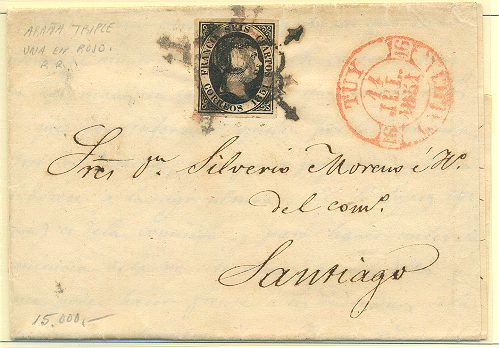 ARAÑA TRIPLE
UNA EN ROJO.
R.R.
FRANCO SEIS CUARTOS
CORREOS 1851
TUY
16
14
JUL.
1851
16
Sres. Dn. Silverio Moreno é Ho.
del como.
Santiago
15.000,-